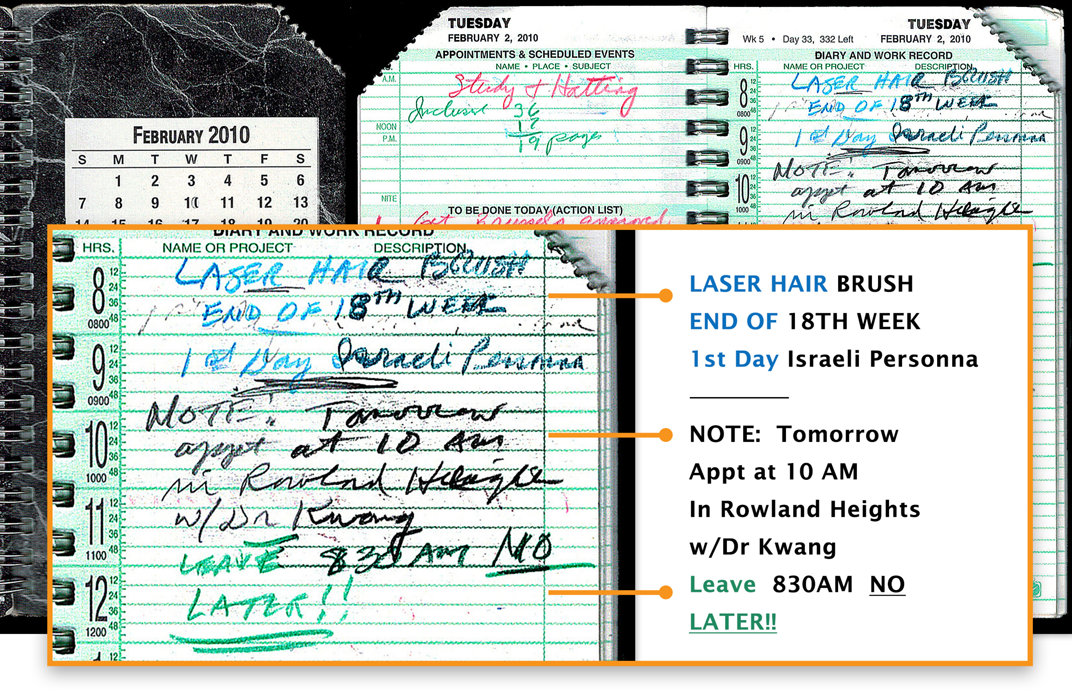 FEBRUARY 2010
S M T W T F S
1 2 3 4 5 6
7 8 9 10 11 12 13
14 15 16 17 18 19 20
TUESDAY
FEBRUARY 2, 2010
APPOINTMENTS & SCHEDULED EVENTS
NAME • PLACE • SUBJECT
A.M.
Study +
Inclusive 36
NOON
P.M.
19 pages
NITE
TO BE DONE TODAY (ACTION LIST)
Get
TUESDAY
Wk 5 • Day 33, 332 Left FEBRUARY 2, 2010
DIARY AND WORK RECORD
HRS. NAME OR PROJECT DESCRIPTION
LASER HAIR BRUSH
8
END OF 18TH WEEK
0800
9 1st Day Israeli Personna
0900
NOTE: Tomorrow
10 appt at 10 AM
1000 in Rowland Heights
DIARY AND WORK RECORD
HRS. NAME OR PROJECT DESCRIPTION
LASER HAIR BRUSH
8 12 24 36 48
END OF 18TH WEEK
0800
9 12 24 36 48 1st Day Israeli Personna
0900
NOTE: Tomorrow
10 12 24 36 48 appt at 10 AM
1000 in Rowland Heights
11 12 24 36 48 w/Dr Kwang
1100 LEAVE 830 AM NO
12 12 24 36 48 LATER!!
1200
LASER HAIR BRUSH
END OF 18TH WEEK
1st Day Israeli Personna
NOTE: Tomorrow
Appt at 10 AM
In Rowland Heights
w/Dr Kwang
Leave 830AM NO
LATER!!